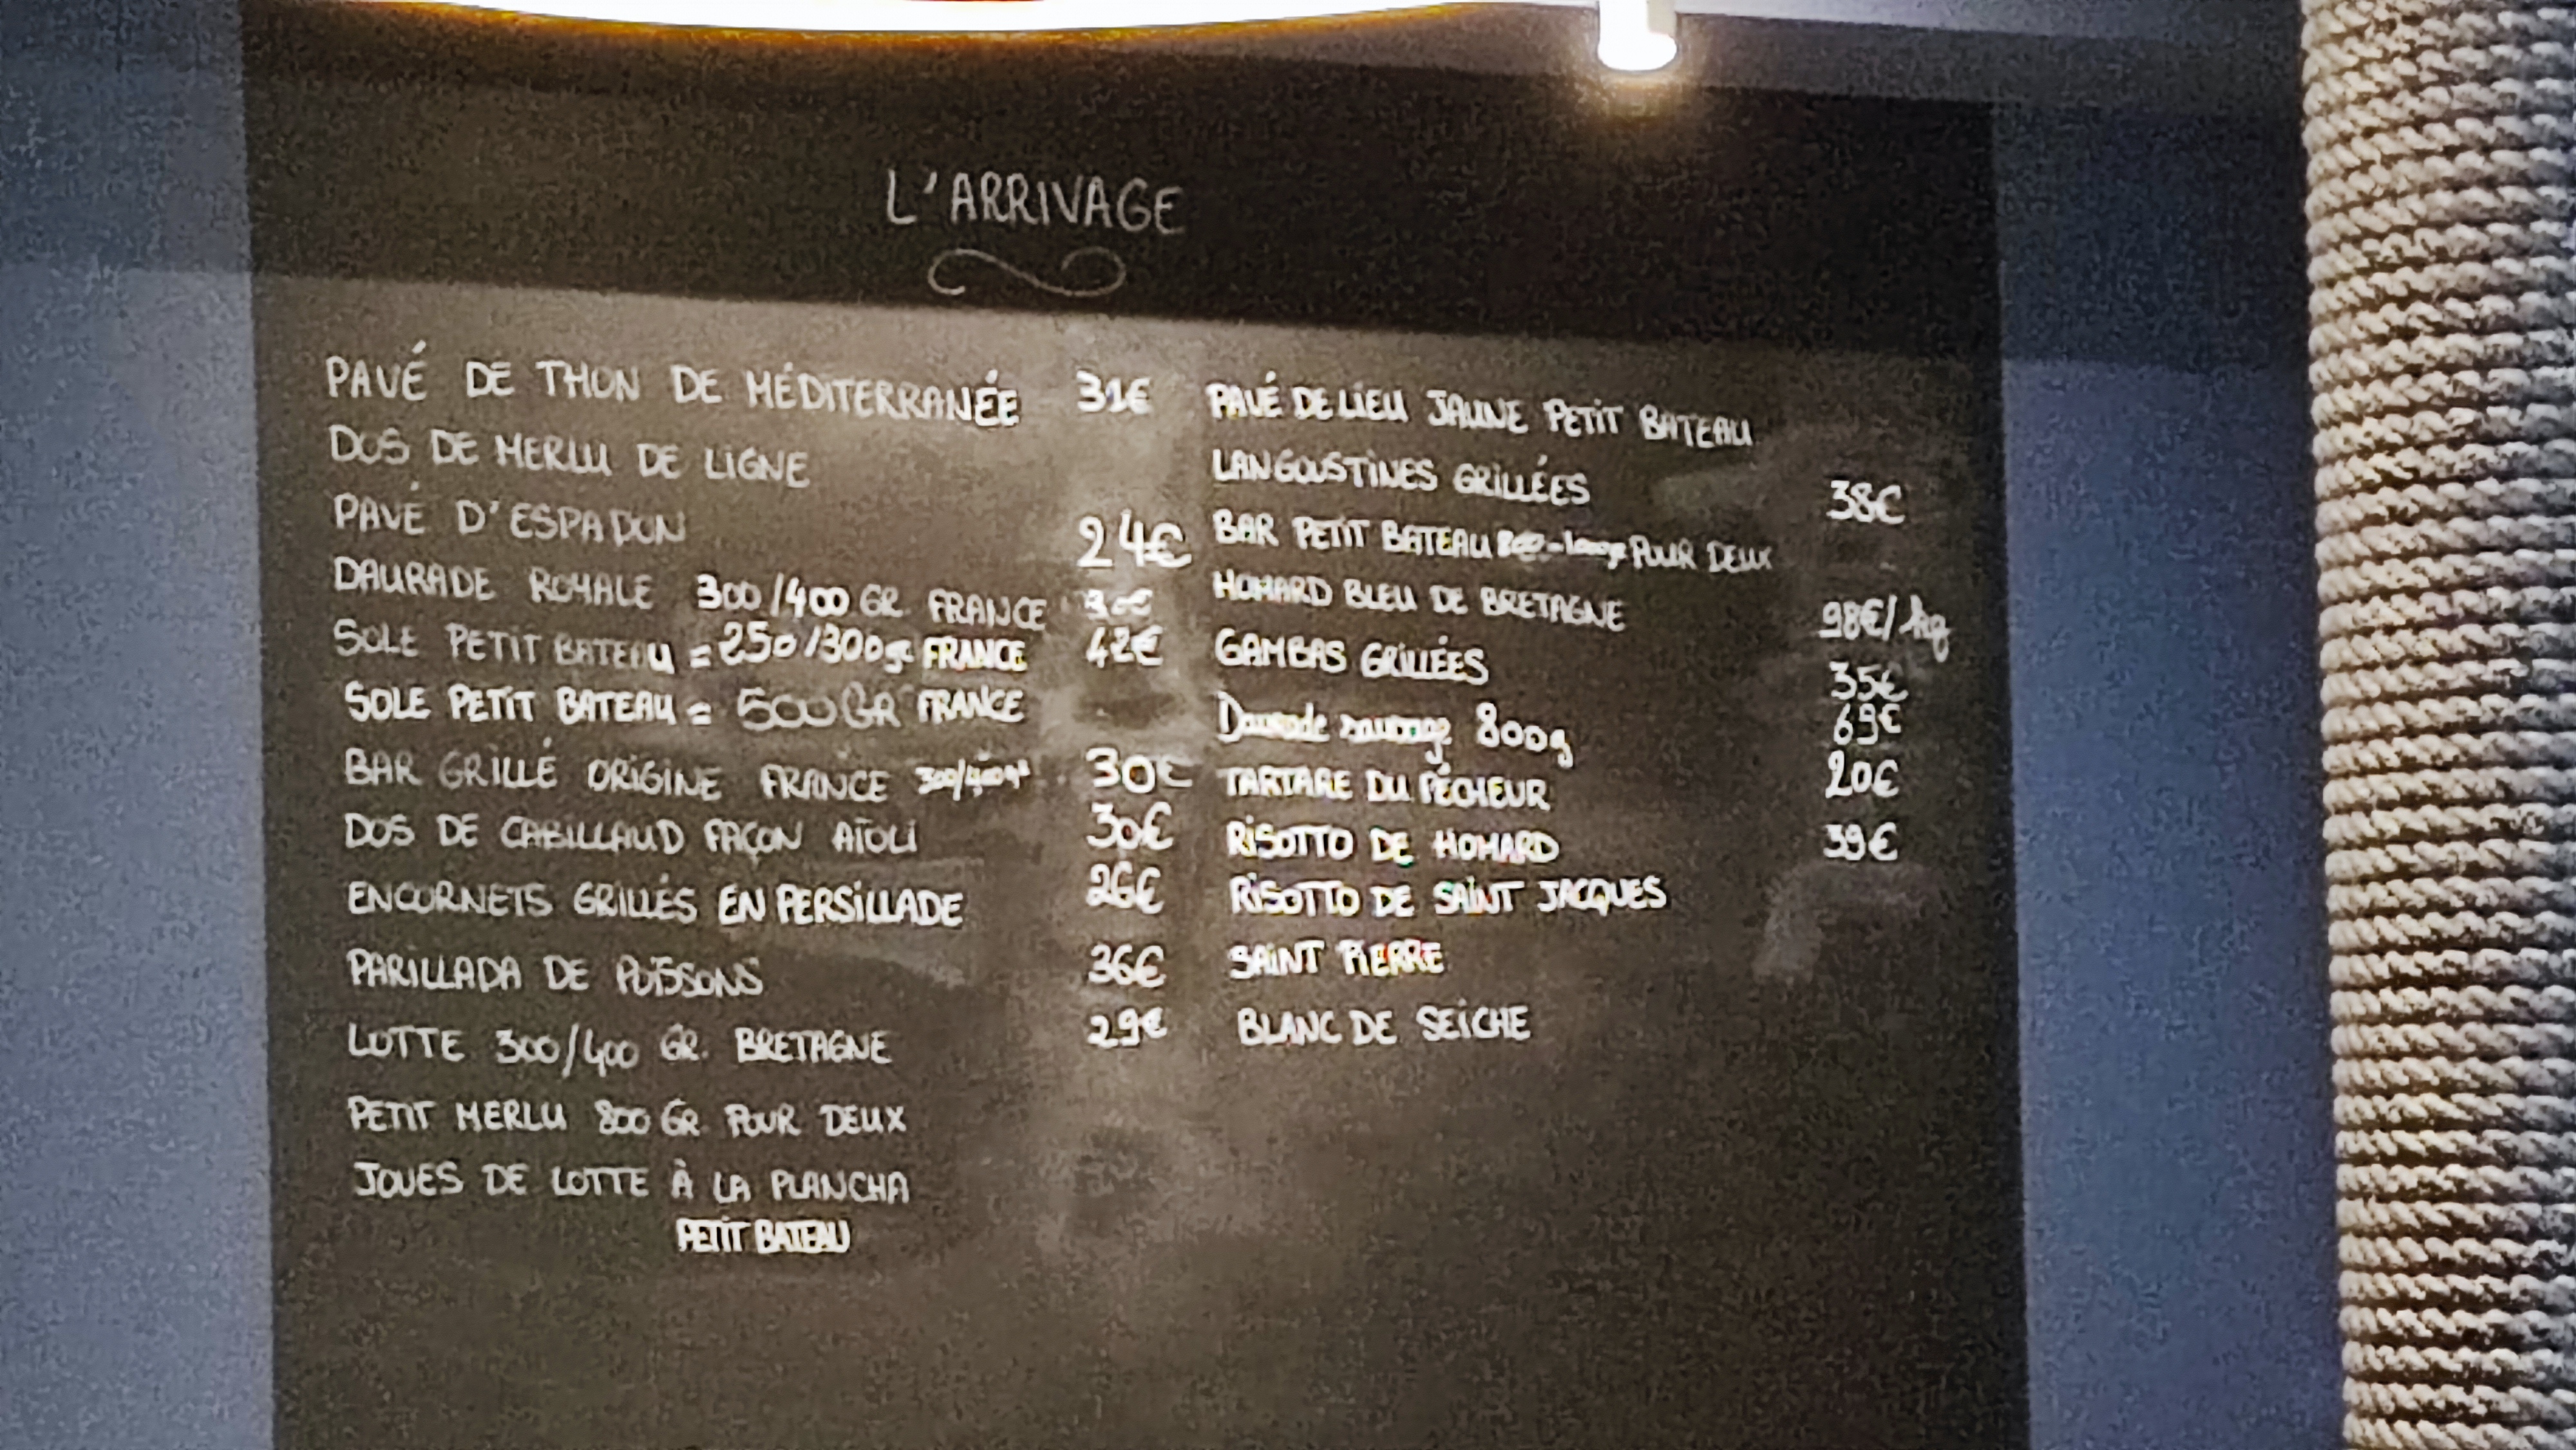 L'ARRIVAGE
PAVÉ DE THON DE MÉDITERRANÉE 31€
DOS DE MERLU DE LIGNE
PAVÉ D'ESPADON 24€
DAURADE ROYALE 300/400 GR. FRANCE
SOLE PETIT BATEAU = 250/300gr FRANCE 42€
SOLE PETIT BATEAU = 500GR FRANCE
BAR GRILLÉ ORIGINE FRANCE 300/400gr 30€
DOS DE CABILLAUD FAÇON AÏOLI 30€
ENCORNETS GRILLÉS EN PERSILLADE 26€
PARILLADA DE POISSONS 36€
LOTTE 300/400 GR. BRETAGNE 29€
PETIT MERLU 800 GR POUR DEUX
JOUES DE LOTTE À LA PLANCHA
PETIT BATEAU
PAVÉ DE LIEU JAUNE PETIT BATEAU
LANGOUSTINES GRILLÉES 38€
BAR PETIT BATEAU POUR DEUX
HOMARD BLEU DE BRETAGNE 98€/kg
GAMBAS GRILLÉES 35€
Daurade sauvage 800g 69€
TARTARE DU PÉCHEUR 20€
RISOTTO DE HOMARD 39€
RISOTTO DE SAINT JACQUES
SAINT PIERRE
BLANC DE SEICHE